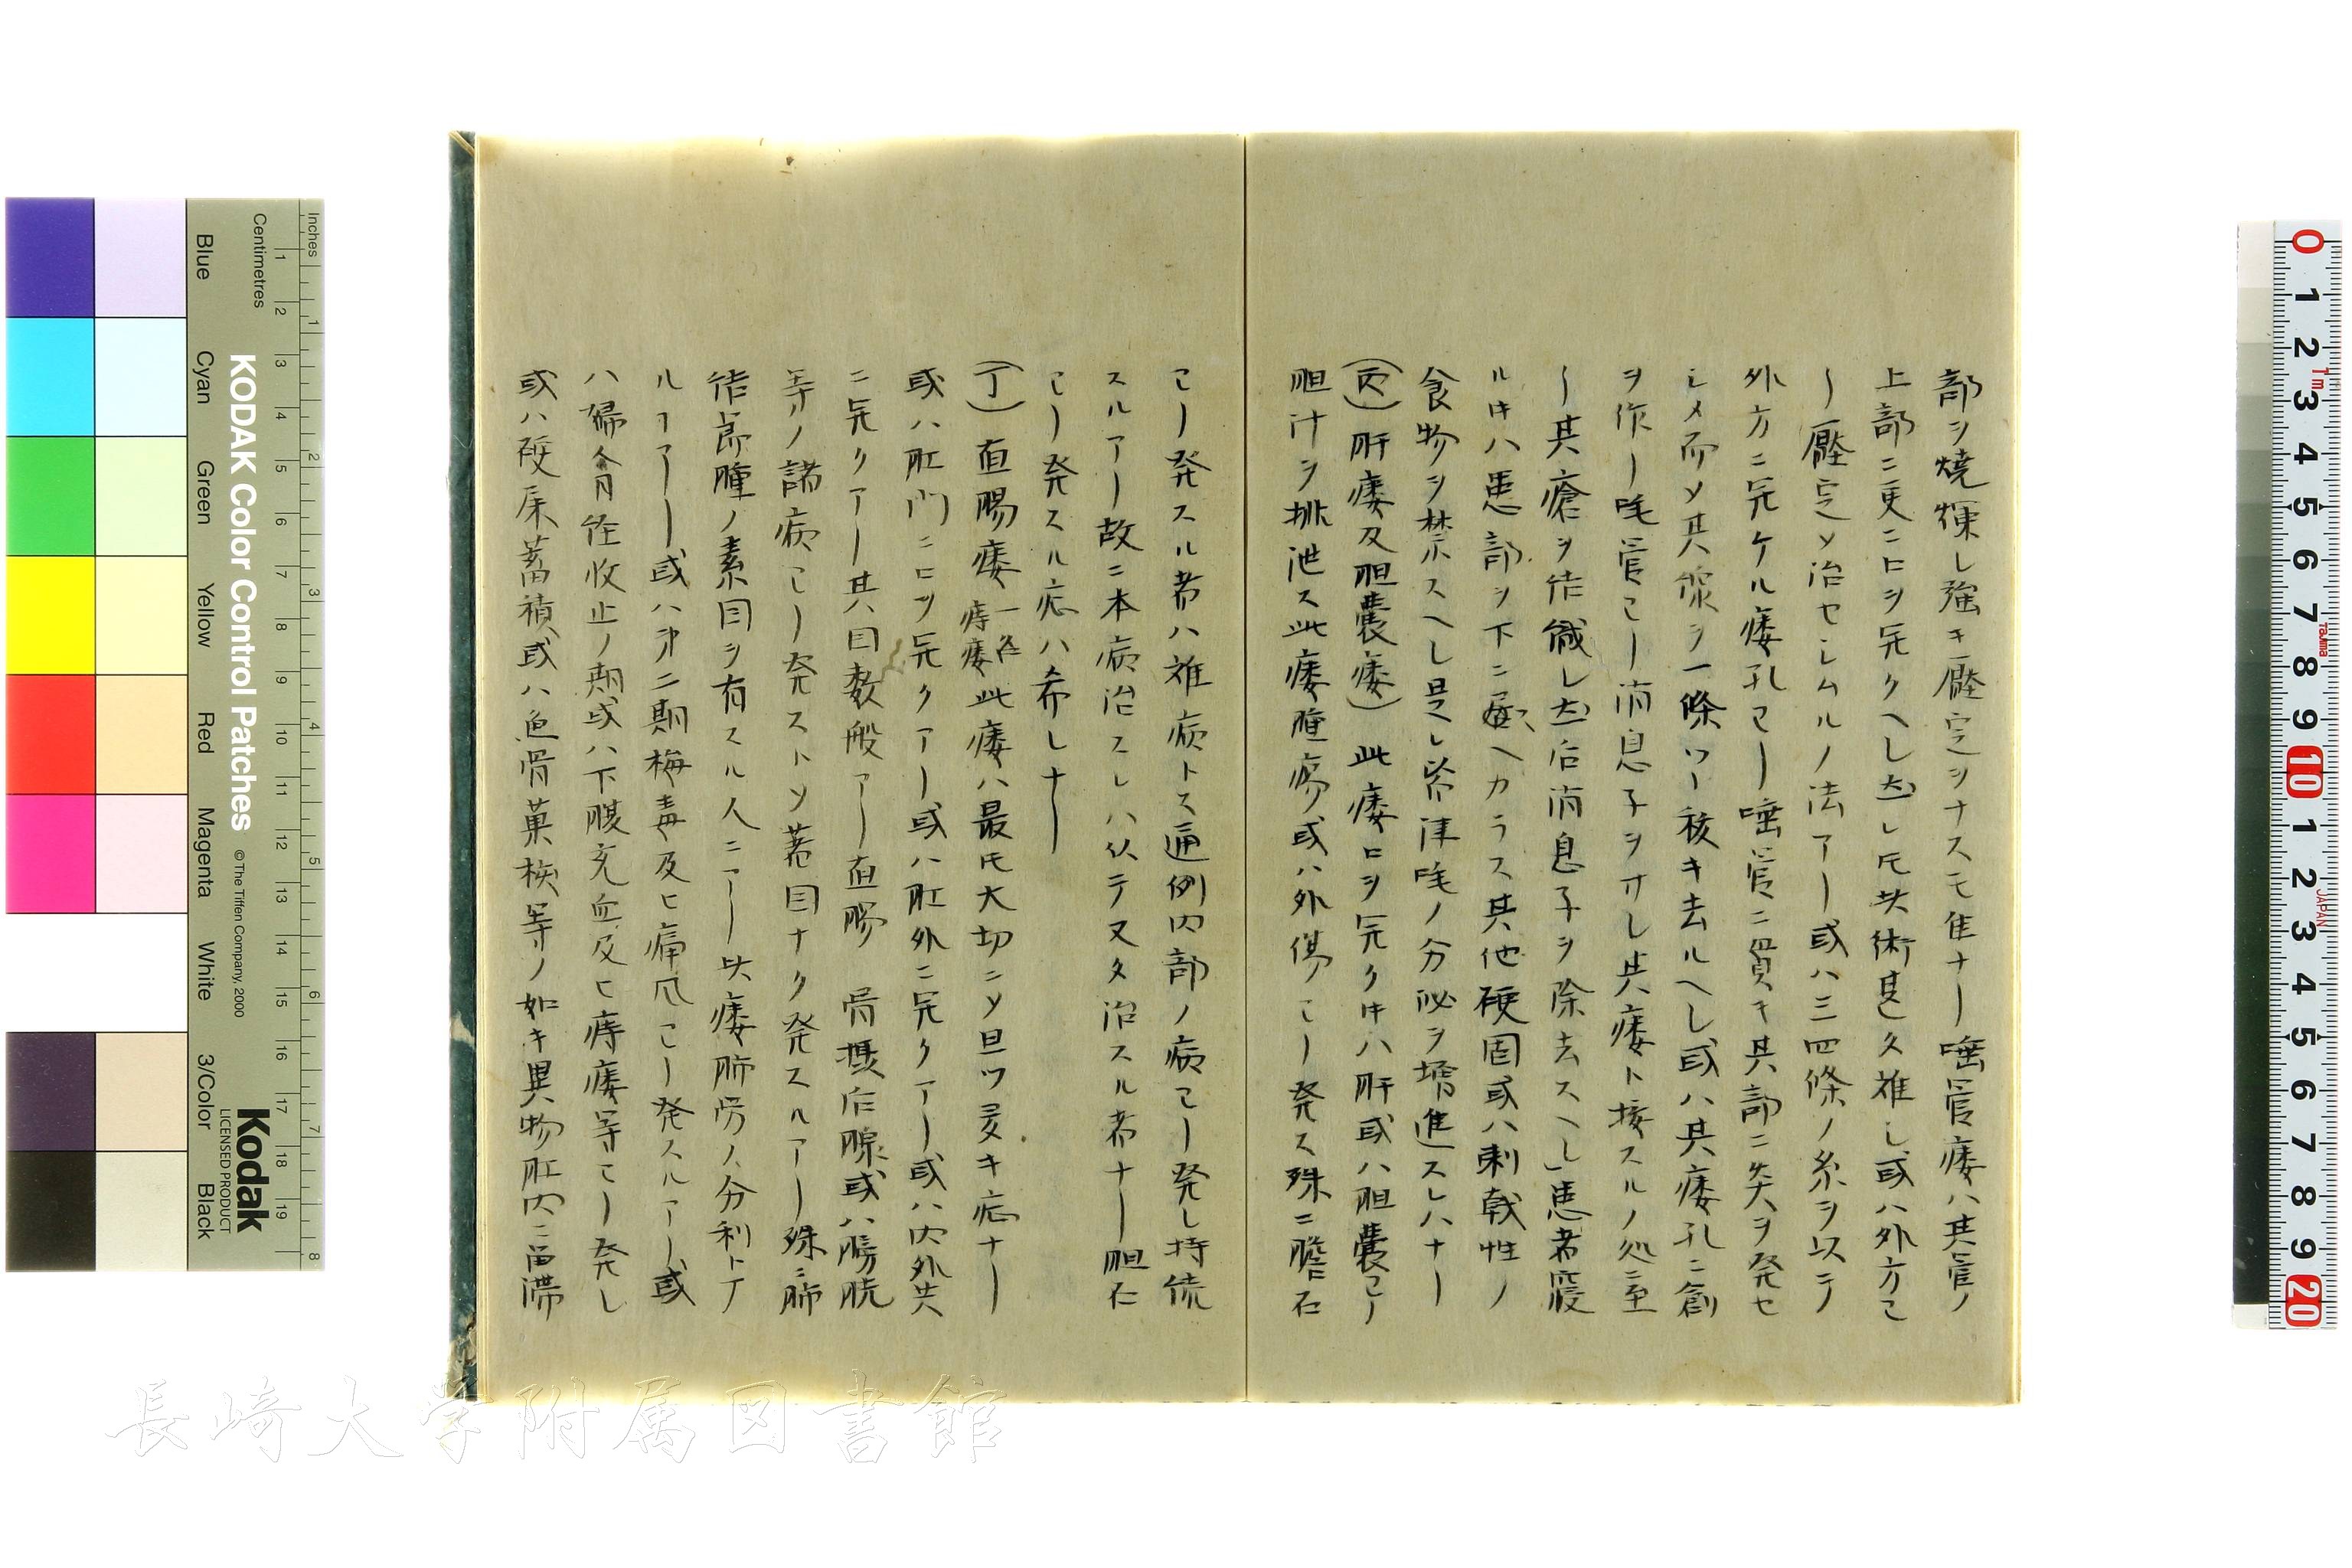 部ヲ焼燥シ強キ壓定ヲナスモ隹ナリ唾管瘻ハ其管ノ
上部ニ更ニ口ヲ穿クヘシ然レ𪜈其術甚タ難シ或ハ外方ヨ
リ壓定〆治セシムルノ法アリ或ハ三四條ノ糸ヲ以テ
外方ニ穿ケル瘻孔ヨリ唾管ニ貫キ其部ニ炎ヲ発セ
シメ而〆其線ヲ一條ツヽ抜キ去ルヘシ或ハ其瘻孔ニ創
ヲ作リ唾管ヨリ消息子ヲ才シ其瘻ト接スルノ処ニ至
リ其瘡ヲ結緘シ然后消息子ヲ除去スヘシ患者寝
ルキハ患部ヲ下ニ爲ヘカラス其他硬固或ハ刺戟性ノ
食物ヲ禁スヘシ是レ皆津唾ノ分泌ヲ増進スレハナリ
(丙)肝瘻及胆嚢瘻) 此瘻口ヲ穿クキハ肝或ハ胆嚢ヨリ
胆汁ヲ排泄ス此瘻腫瘍或ハ外傷ヨリ発ス殊ニ膽石
ヨリ発スル者ハ難病トス通例内部ノ病ヨリ発シ持続
スルアリ故ニ本病治スレハ从テ又タ治スル者ナリ胆石
ヨリ発スル症ハ希レナリ
(丁)直腸瘻 一名痔瘻 此瘻ハ最モ大切ニ〆且ツ多キ症ナリ
或ハ肛門ニ口ツ穿クアリ或ハ肛外ニ穿クアリ或ハ内外共
ニ穿クアリ其因数般アリ直腸 骨摂后腺或ハ膀胱
等ノ諸病ヨリ発ストソ著因ナク発スルアリ殊ニ肺
結節腫ノ素因ヲ有スル人ニアリ此瘻肺労ノ分利トナ
ルヿアリ或ハ才二期梅毒及ヒ痛風ヨリ発スルアリ或
ハ婦人月経收止ノ期或ハ下腹充血及ヒ痔瘻等ヨリ発シ
或ハ硬屎蓄積或ハ魚骨菓核等ノ如キ異物肛内ニ留滞
KODAK Color Control Patches
© The Tiffen Company, 2000
Kodak
LICENSED PRODUCT
Inches
Centimetres
Blue
Cyan
Green
Yellow
Red
Magenta
White
3/Color
Black
長崎大学附属図書館